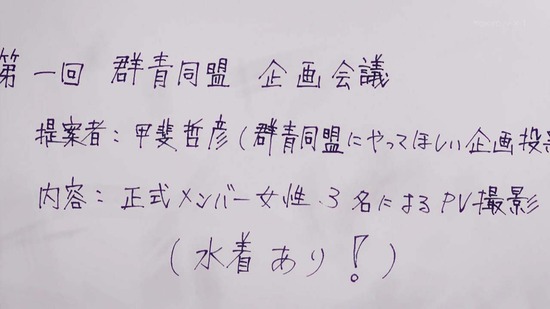 第一回 群青同盟 企画会議
提案者：甲斐哲彦(群青同盟にやってほしい企画投票
内容：正式メンバー女性3名によるPV撮影
(水着あり!)